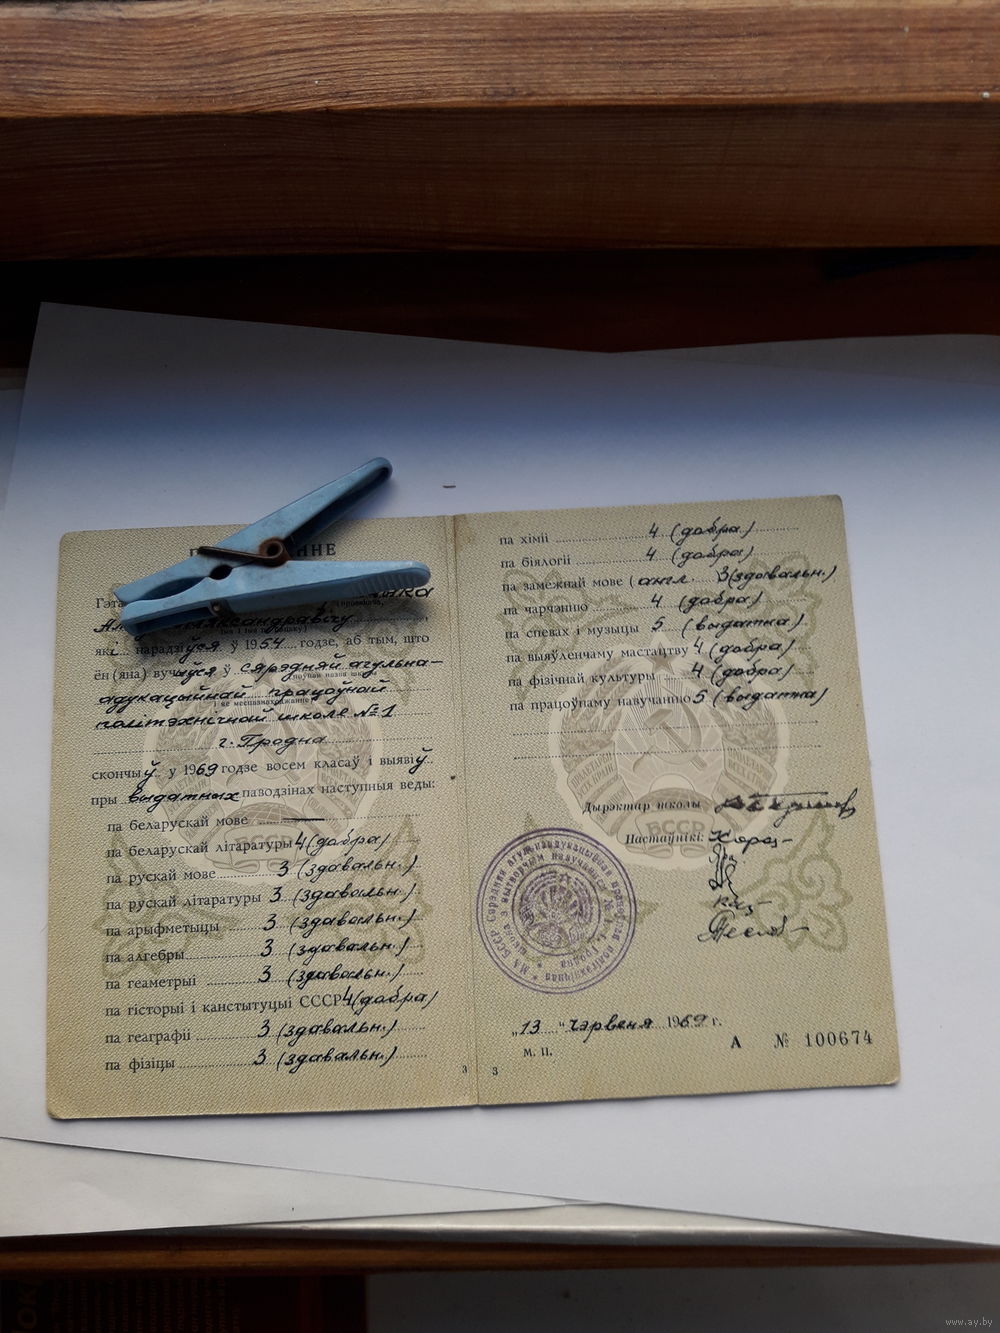 Гэта
Аляксандравічу
які нарадзіўся ў 1954 годзе, аб тым, што
ён (яна) вучыўся ў сярэдняй агульна-
адукацыйнай працоўнай
політэхнічнай школе №1
г. Гродна
скончыў у 1969 годзе восем класаў і выявіў
пры выдатных паводзінах наступныя веды:
па беларускай мове —
па беларускай літаратуры 4 (добра)
па рускай мове 3 (здавальн.)
па рускай літаратуры 3 (здавальн.)
па арыфметыцы 3 (здавальн.)
па алгебры 3 (здавальн.)
па геаметрыі 3 (здавальн.)
па гісторыі і канстытуцыі СССР 4 (добра)
па геаграфіі 3 (здавальн.)
па фізіцы 3 (здавальн.)
3
па хіміі 4 (добра)
па біялогіі 4 (добра)
па замежнай мове (англ. 3 (здавальн.)
па чарчэнню 4 (добра)
па спевах і музыцы 5 (выдатна)
па выяўленчаму мастацтву 4 (добра)
па фізічнай культуры 4 (добра)
па працоўнаму навучанню 5 (выдатна)
Дырэктар школы
Настаўнікі:
БССР
БССР
„13" чэрвеня 1969 г.
М. П.
А № 100674
3
www.ay.by